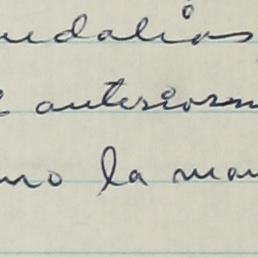 edalias
anteriorm
mo la man